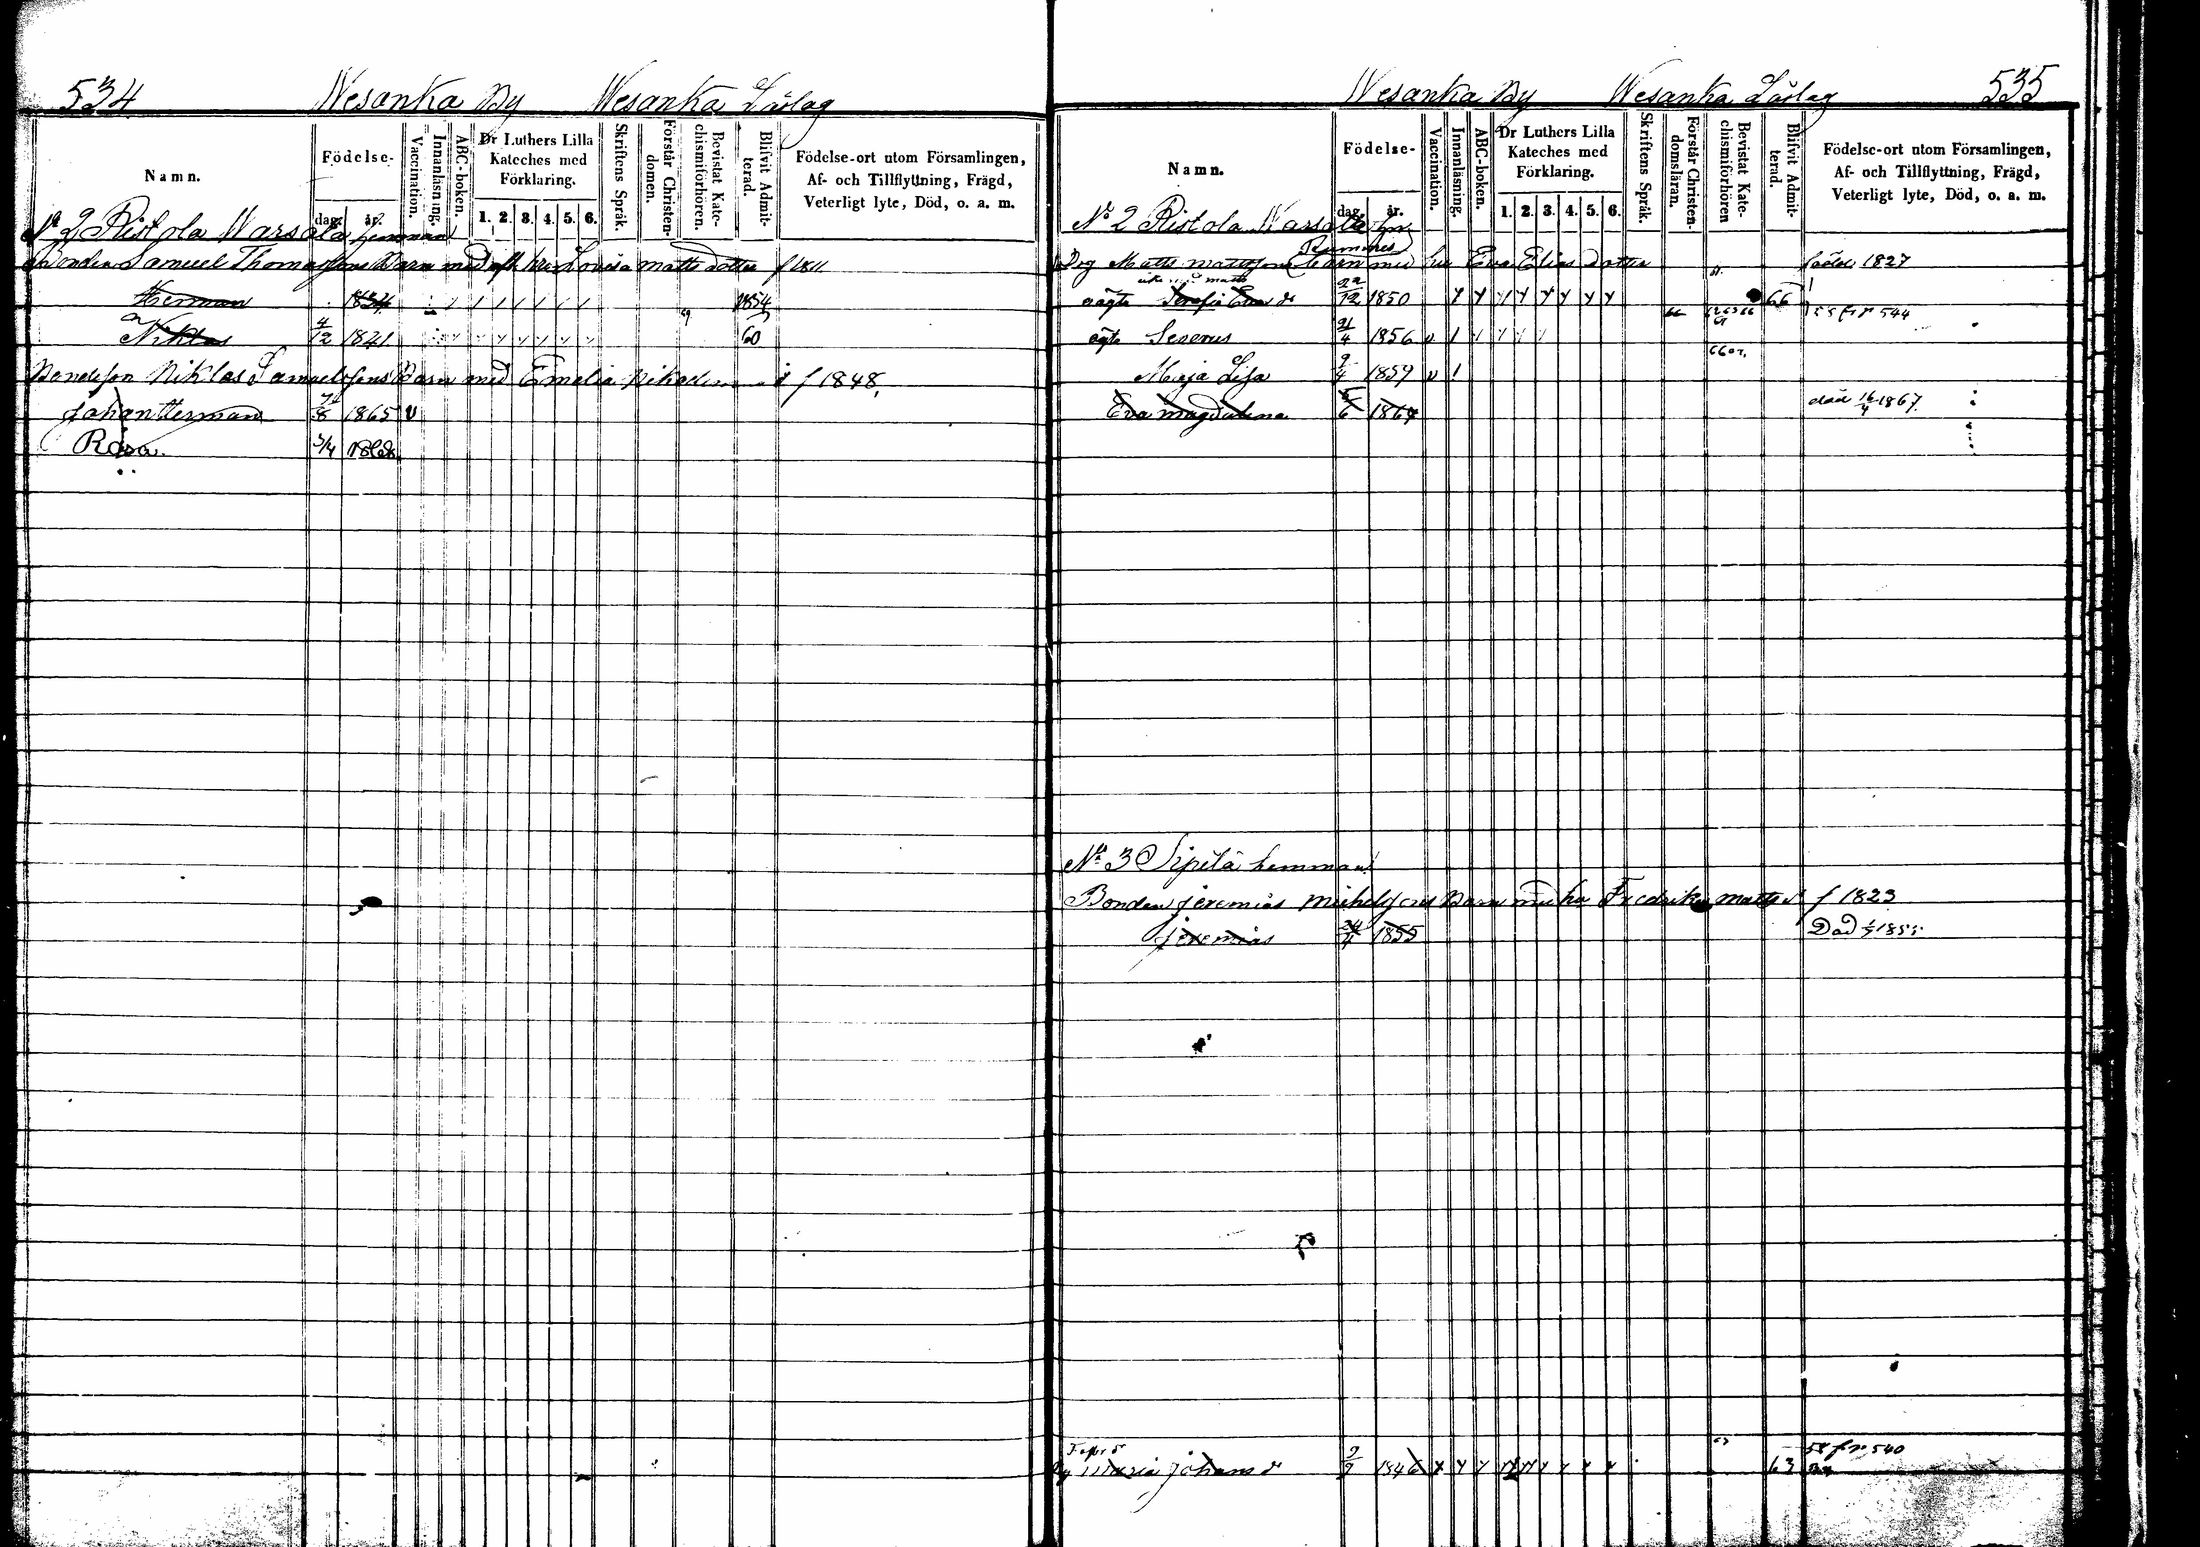 534 Wesanka By Wesanka Läslag
Namn.
Födelse-
dag. år.
Vaccination.
Innanläsning.
ABC-boken.
Dr Luthers Lilla Kateches med Förklaring.
1. 2. 3. 4. 5. 6.
Skriftens Språk.
Förstår Christendomen.
Bevistat Katechismiförhören.
Blifvit Admitterad.
Födelse-ort utom Församlingen,
Af- och Tillflyttning, Frägd,
Veterligt lyte, Död, o. a. m.
No 2 Ristola Warsala hemman
Bonden Samuel Thomassons Barn med afl hro Lovisa Matts dotter f 1811
Herman 1834 1854
Niklas 4/12 1841 60
Bondeson Niklas Samuelssons Barn med Emelia f 1848.
Johan Herman 8 1865 v
Rosa 3/4 1868.
Wesanka By Wesanka Läslag 535
Namn.
Födelse-
dag. år.
Vaccination.
Innanläsning.
ABC-boken.
Dr Luthers Lilla Kateches med Förklaring.
1. 2. 3. 4. 5. 6.
Skriftens Språk.
Förstår Christendomsläran.
Bevistat Katechismiförhören
Blifvit Admitterad.
Födelse-ort utom Församlingen,
Af- och Tillflyttning, Frägd,
Veterligt lyte, Död, o. a. m.
No 2 Ristola Warsala
Matts Mattssons Barn med hu Eva Elias dotter född 1827
oägta 22/12 1850 66 fr 544
ägta Severus 21/4 1856 v
Maja Lisa 9/4 1859 v
Eva Magdalena 6 1864 död 16/4 1867.
No 3 Sipilä hemman
Bonden Jeremias Michelssons Barn med hu Fredrika Matts d f 1823
Jeremias 4 1855 Död 1855
Maria Johans d 1846 63 58 fr 540